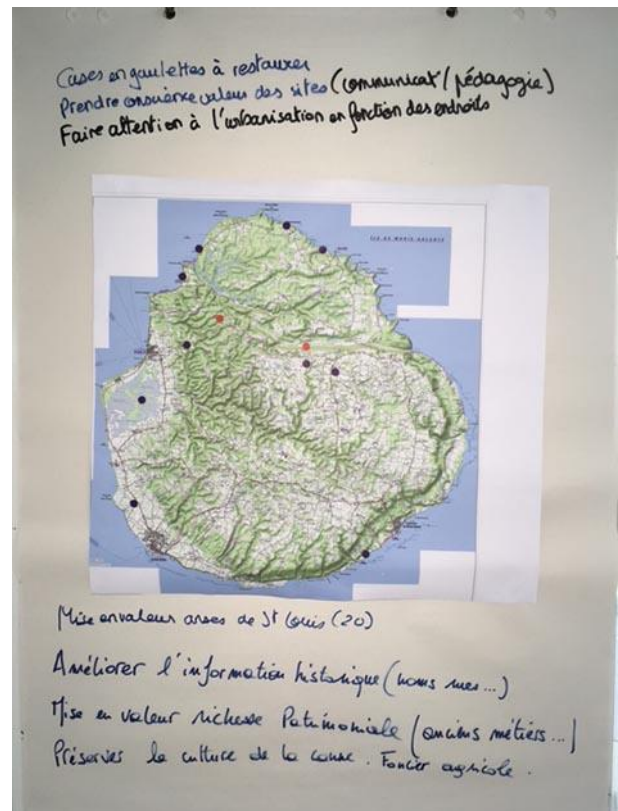 Cases en gaulettes à restaurer
Prendre conscience valeur des sites (communicat°/pédagogie)
Faire attention à l'urbanisation en fonction des endroits
ILE DE MARIE-GALANTE
Mise en valeur anses de St Louis (20)
Améliorer l'information historique (noms rues...)
Mise en valeur richesse Patrimoniale (anciens métiers...)
Préserver la culture de la canne. Foncier agricole.